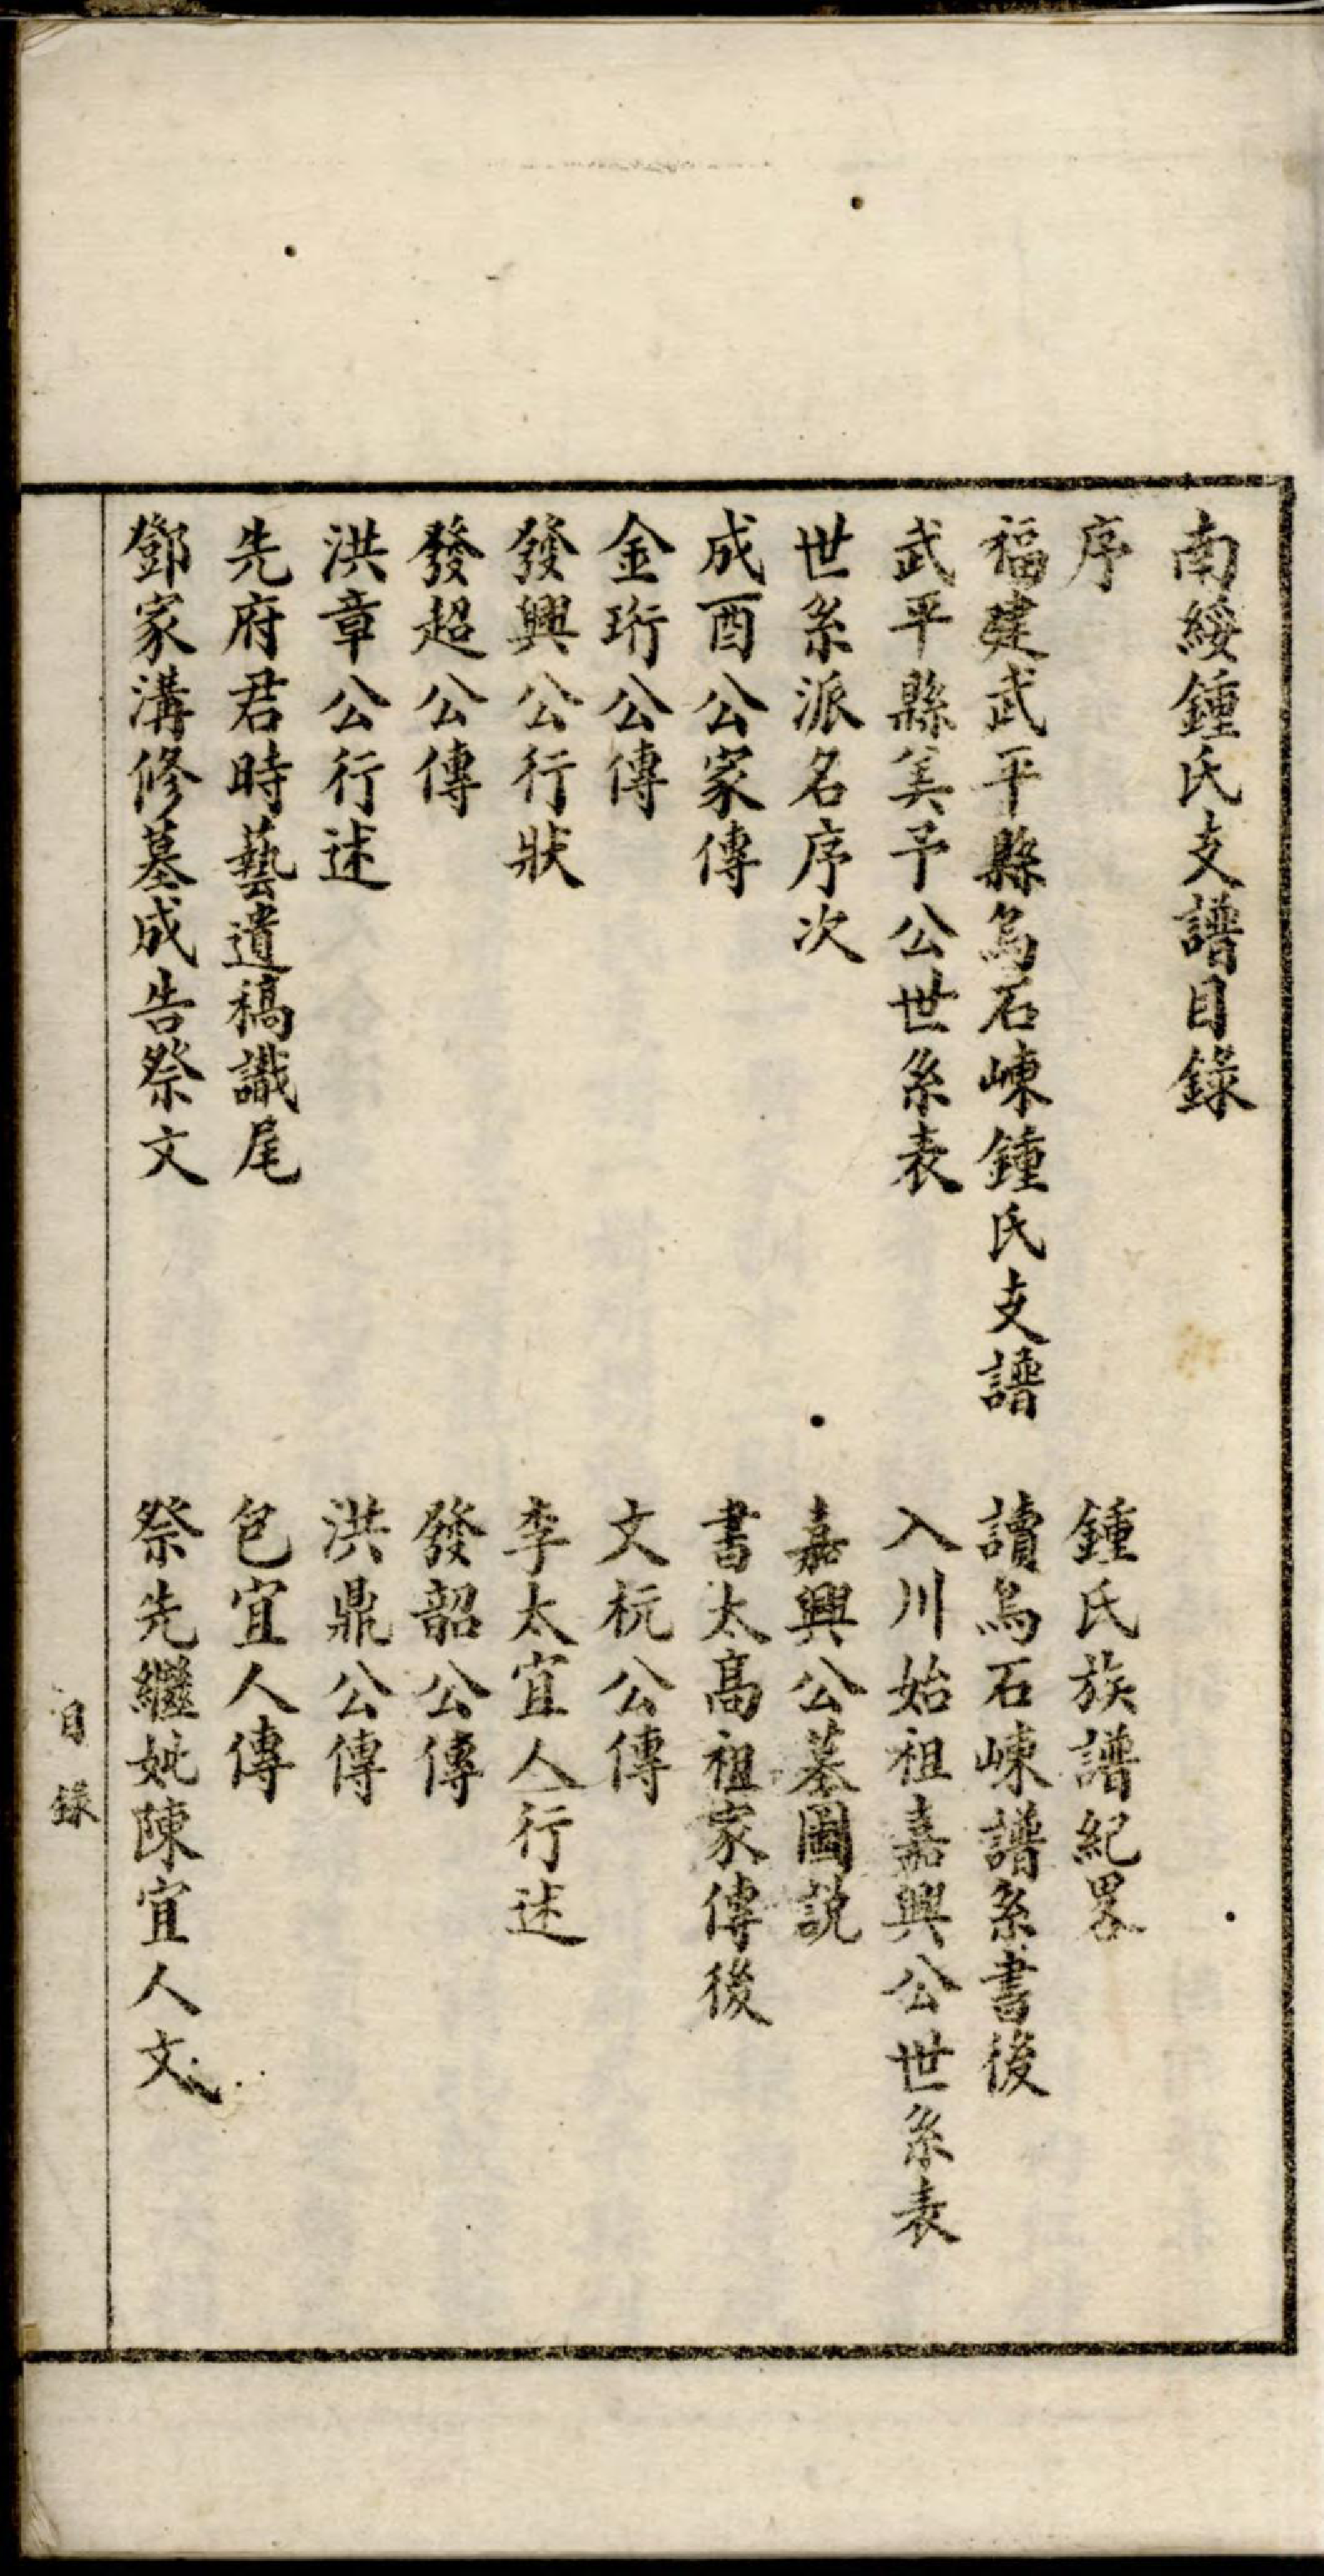 南綏鍾氏支譜目錄
序　鍾氏族譜紀畧
福建武平縣烏石崠鍾氏支譜　讀烏石崠譜系書後
武平縣美予公世系表　入川始祖嘉興公世系表
世系派名序次　嘉興公墓圖說
成酉公家傳　書太高祖家傳後
金珩公傳　文杬公傳
發興公行狀　李太宜人行述
發超公傳　發韶公傳
洪章公行述　洪鼎公傳
先府君時藝遺稿識尾　包宜人傳
鄧家溝修墓成告祭文　祭先繼妣陳宜人文
目錄